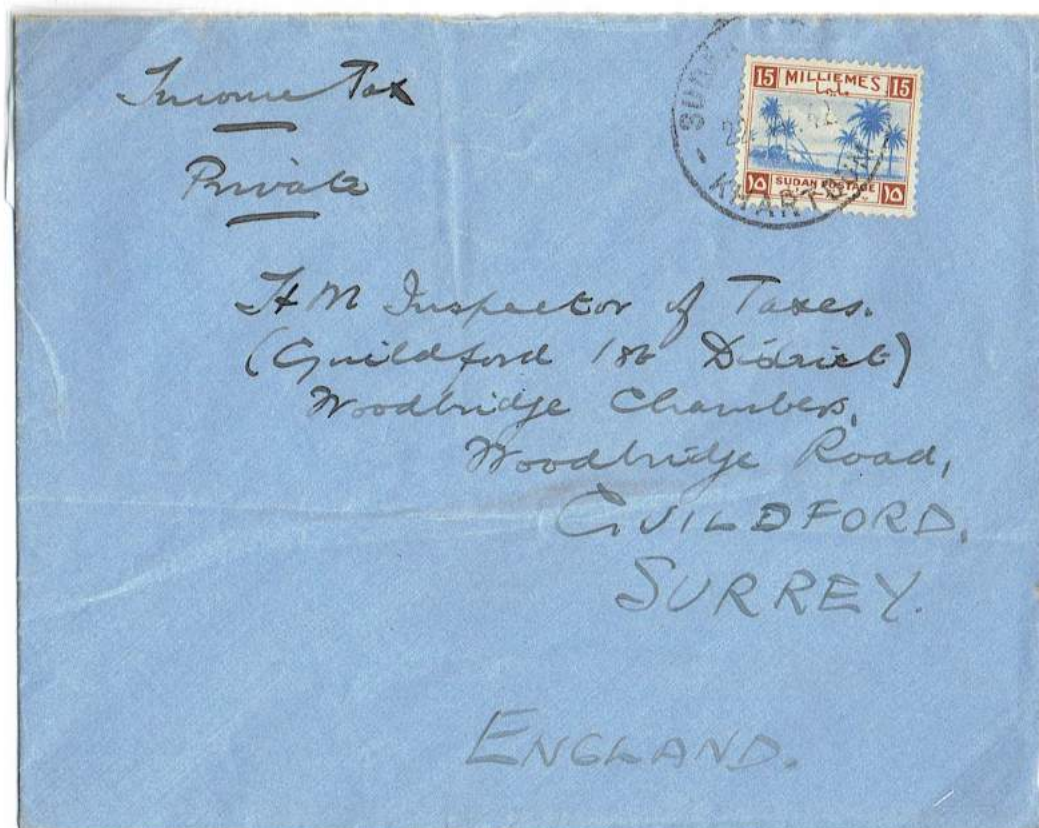 Income Tax
Private
15 MILLIEMES 15
SUDAN POSTAGE
١٥ ١٥
KHARTOUM
H M Inspector of Taxes.
(Guildford 1st District)
Woodbridge Chambers,
Woodbridge Road,
GUILDFORD,
SURREY.
ENGLAND.